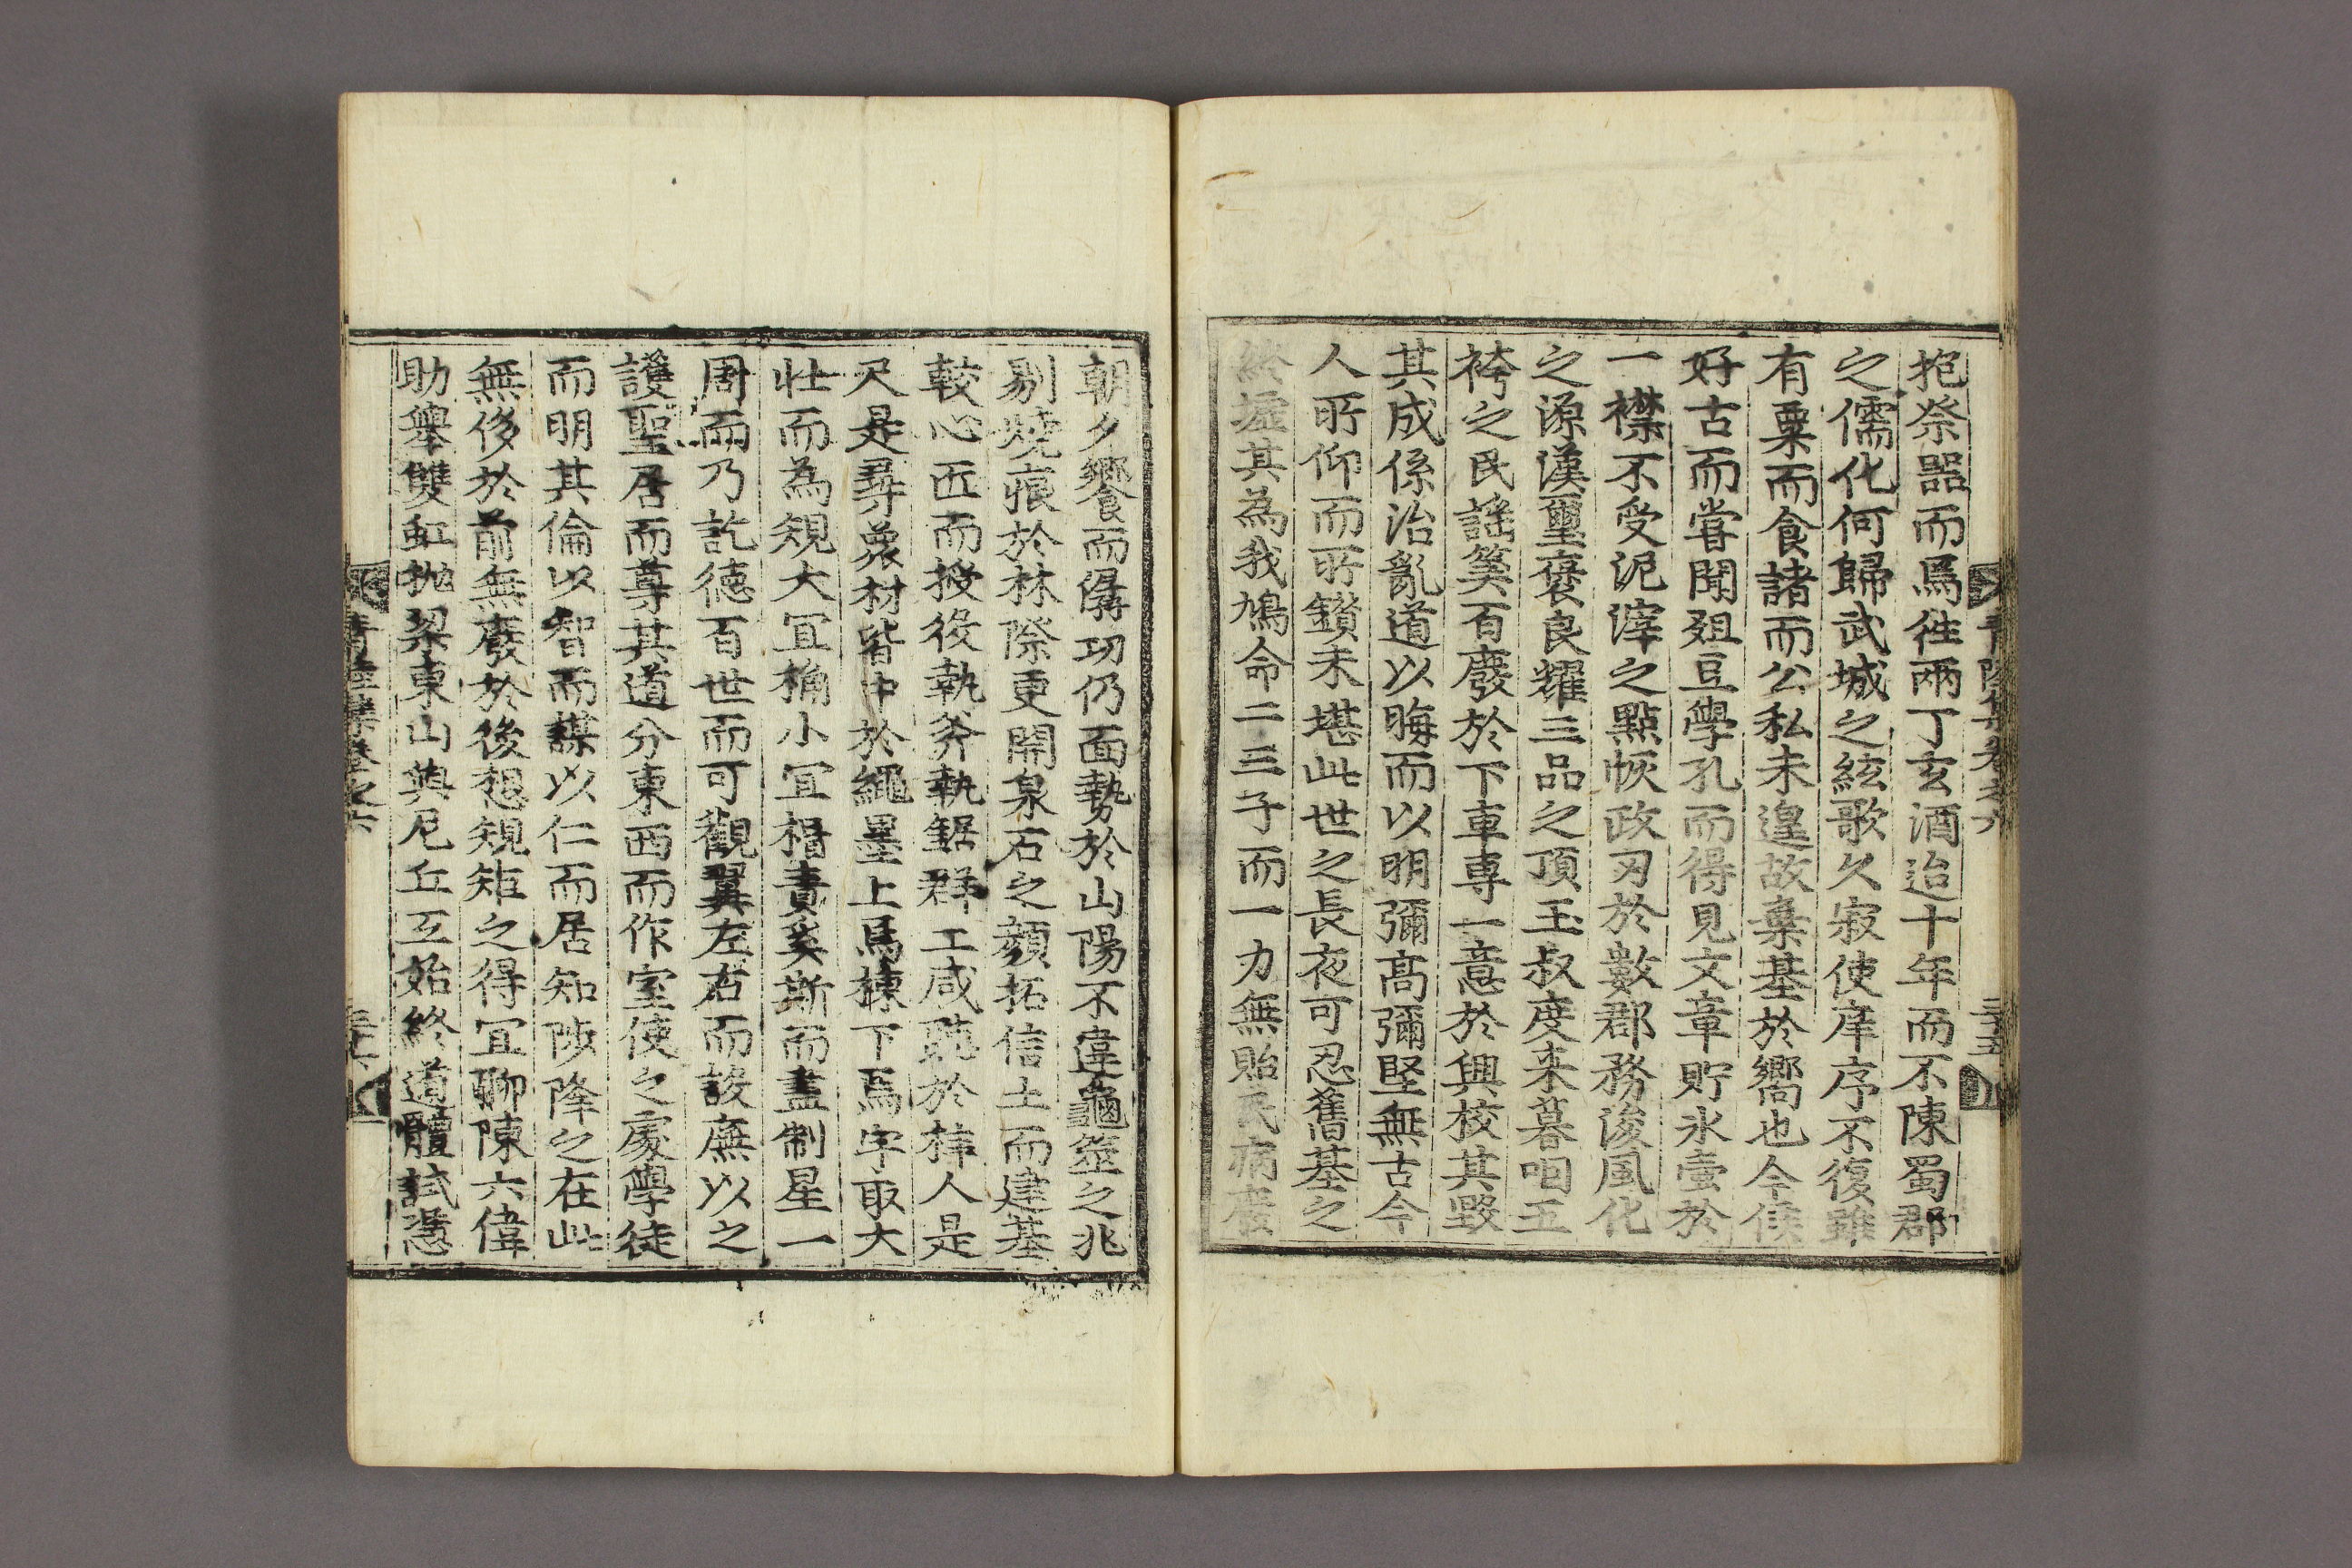 抱祭器而焉徃兩丁玄酒迨十年而不陳蜀郡
之儒化何歸武城之絃歌久寂使庠序不復雖
有粟而食諸而公私未遑故棄基於嚮也今候
好古而嘗聞爼豆學孔而得見文章貯氷壷於
一襟不受泥滓之點恢政刃於數郡務浚風化
之源漢璽褒良耀三品之頂玉叔度来暮咱五
袴之民謡篓百廢於下車専一意於興校其毁
其成係治亂道以晦而以明彌高彌堅無古今
人所仰而所鑽未堪此世之長夜可忍舊基之
終墟其為我鳩命二三子而一力無貽民病
朝夕饗而僝功仍面勢於山陽不違龜筮之兆
剔燒痕於林際更開泉石之顔拓信土而建基
較心匠而授役執斧執鋸群工咸聽於梓人是
尺是尋衆材皆中於繩墨上焉棟下焉牢取大
壮而為規大冝桷小冝楣責奚斯而盡制星一
周而乃訖德百世而可觀翼左右而設廡以之
護聖居而尊其道分東西而作室使之處學徒
而明其倫以智而謀以仁而居知陟降之在此
無侈於前無廢於後想規矩之得冝聊陳六偉
助舉雙虹抛梁東山與尼丘互始終道體試憑
青陸集卷之六
三十五